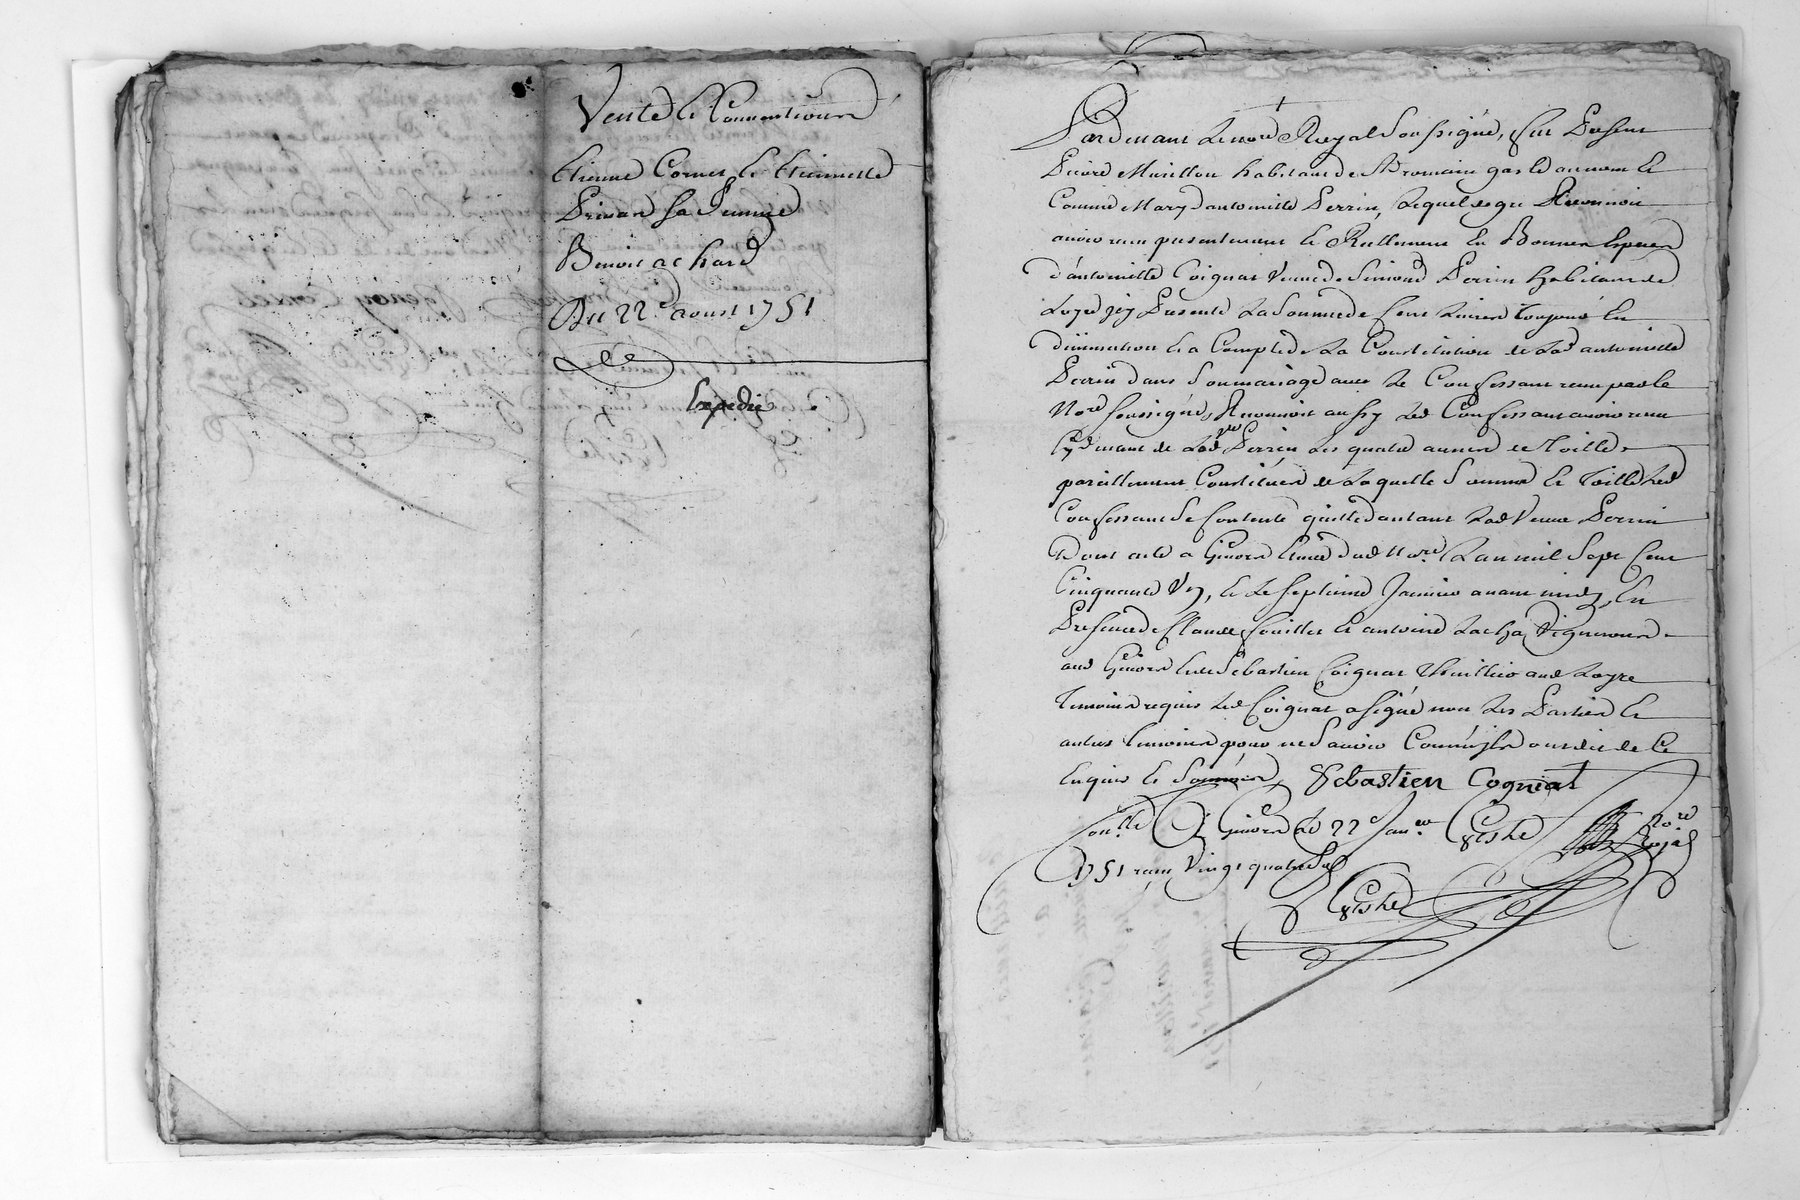 Vente et Conventions
Etienne Cornet et Etiennette
Privan sa femme
Benoit achard
Du 22e aoust 1751
Expedié
Pardevant le nore Royal soussigné, fut Present
Pierre Murillon habitant de St romain
Comme Mary d'antoinette Perrin, Lequel de gré Reconnoit
avoir reçu presentement et Reellement En Bonnes Especes
d'antoinette Coignat Veuve de Simond Perrin habitante de
Loyre Presente La Somme de Cent Livres Tournois En
diminution et a Compte de La Constitution de Lad antoinette
Perrin dans Son mariage avec Le Confessant reçu par le
Nore soussigné, Reconnoit aussy Led Confessant avoir reçu
Cy devant de Lad ve Perrin Les quatre aunes de Toille
pareillement Constituées de Laquelle Somme et Toille Led
Confessant Se Contente quitte d'autant Lad Veuve Perrin
Dont acte a Givors Etude dud Nore L'an mil Sept Cent
Cinquante Un, et Le Septieme Janvier avant midy, En
Presence de Claude et antoine Vignerons
aud Givors et de Sebastien Coignat aud Loyre
Temoins requis Led Coignat a signé non Les Parties et
autres temoins pour ne Sçavoir Comme ils ont dit de Ce
Enquis et Sommés, Sebastien Cogniat
Con.lle a Givors le 22e Janer
1751 reçu Vingt quatre Sols
Nore Royal